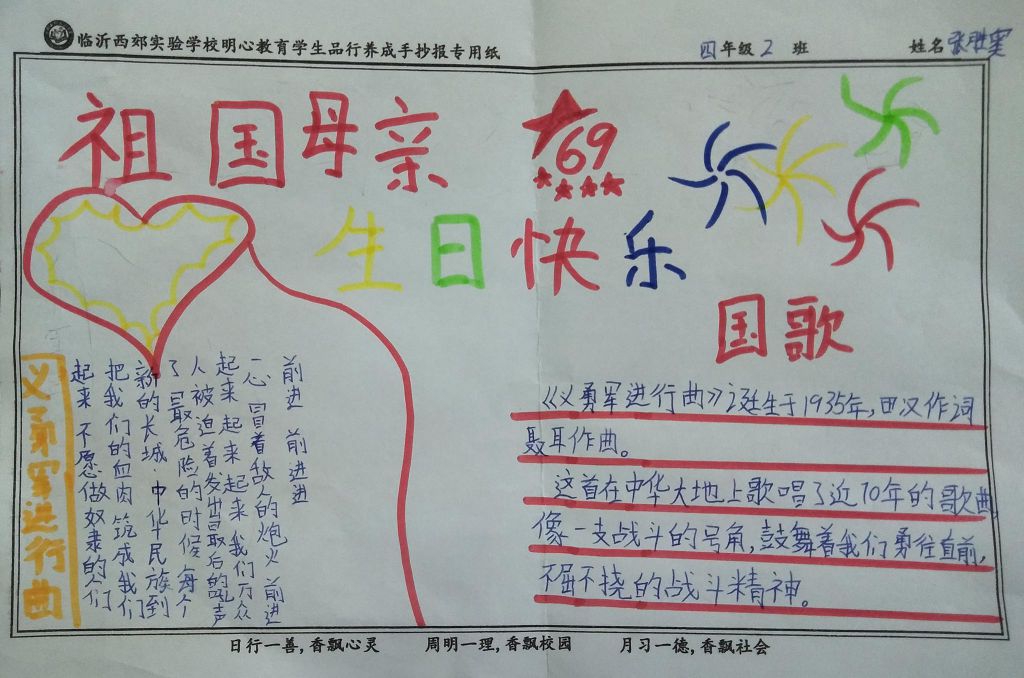 临沂西郊实验学校明心教育学生品行养成手抄报专用纸
四年级2班
姓名
祖国母亲
69
生日快乐
义勇军进行曲
起来 不愿做奴隶的人们
把我们的血肉 筑成我们
新的长城.中华民族到
了 最危险的时候 每个
人被迫着发出最后的吼声
起来 起来 起来 我们万众
一心 冒着敌人的炮火 前进
前进 前进进
国歌
《义勇军进行曲》诞生于1935年,田汉作词
聂耳作曲。
这首在中华大地上歌唱了近70年的歌曲
像一支战斗的号角,鼓舞着我们勇往直前,
不屈不挠的战斗精神。
日行一善,香飘心灵 周明一理,香飘校园 月习一德,香飘社会